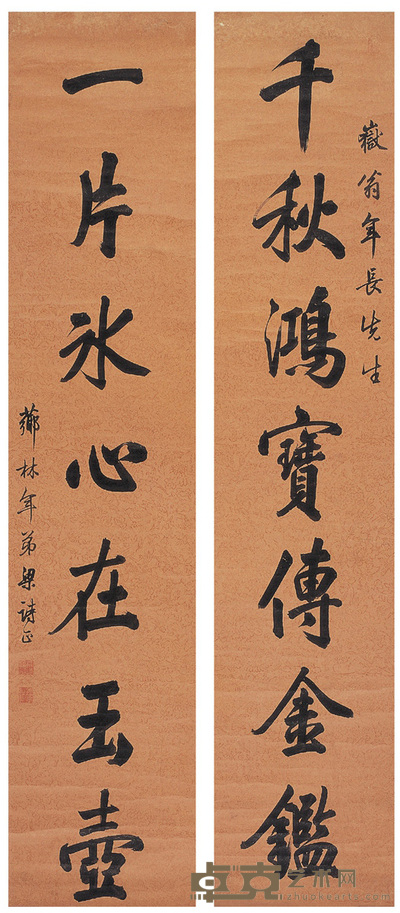 嶽翁年長先生
千秋鴻寶傳金鑑
一片冰心在玉壺
薌林年弟梁詩正
卓克艺术网